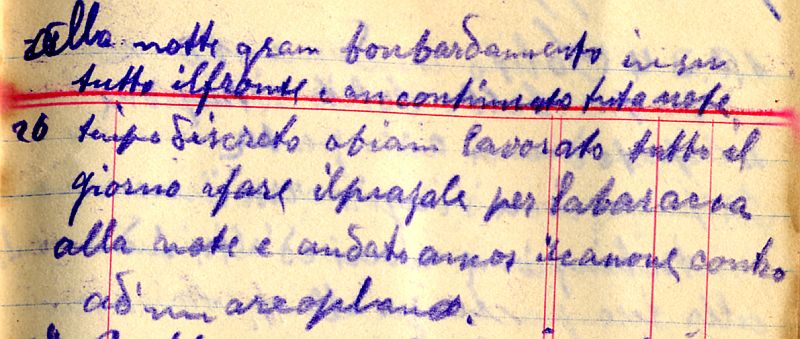 alla notte gram bonbardamento insu
tutto ilfronte e an continuato tuta note
26 tenpo discreto abiam lavorato tutto il
giorno afare ilpiazale per labaraca
alla note e andato ilcanone contro
ad'un areoplano.